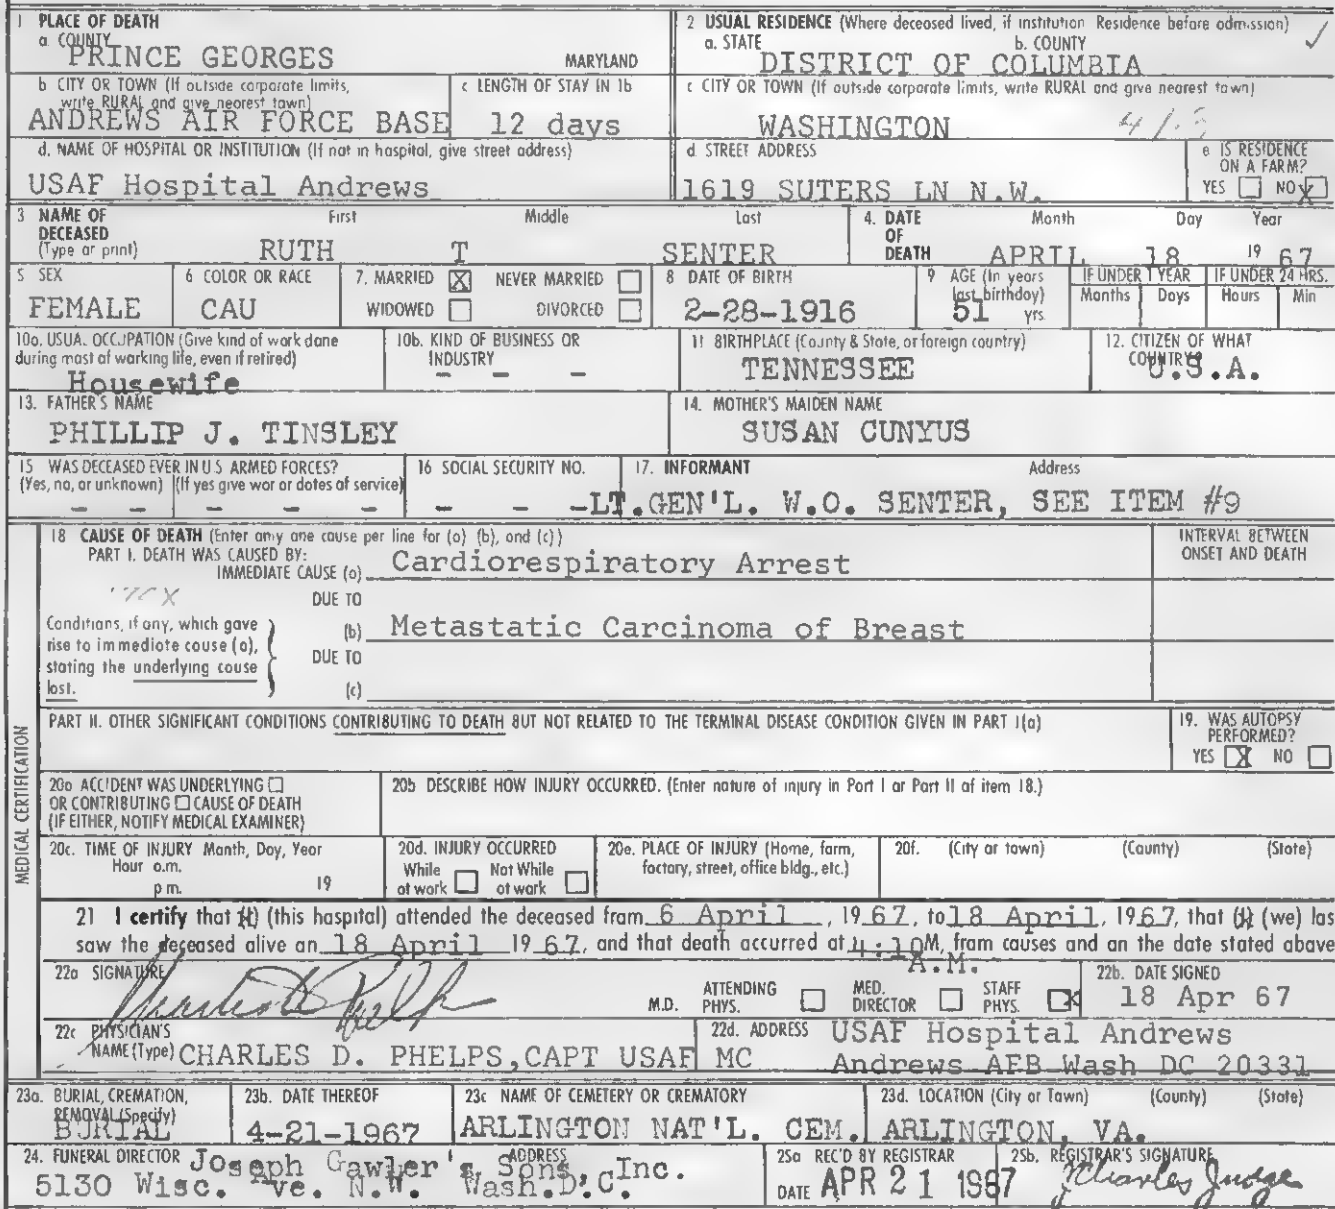 1 PLACE OF DEATH
a. COUNTY
PRINCE GEORGES MARYLAND
2 USUAL RESIDENCE (Where deceased lived, if institution Residence before admission) ✓
a. STATE b. COUNTY
DISTRICT OF COLUMBIA
b CITY OR TOWN (If outside corporate limits, write RURAL and give nearest town)
ANDREWS AIR FORCE BASE
c LENGTH OF STAY IN 1b
12 days
c CITY OR TOWN (If outside corporate limits, write RURAL and give nearest town)
WASHINGTON
d. NAME OF HOSPITAL OR INSTITUTION (If not in hospital, give street address)
USAF Hospital Andrews
d STREET ADDRESS
1619 SUTERS LN N.W.
e IS RESIDENCE ON A FARM?
YES NO X
3 NAME OF DECEASED (Type or print)
First Middle Last
RUTH T SENTER
4. DATE OF DEATH
Month Day Year
APRIL 18 19 67
5 SEX
FEMALE
6 COLOR OR RACE
CAU
7. MARRIED X NEVER MARRIED
WIDOWED DIVORCED
8 DATE OF BIRTH
2-28-1916
9 AGE (In years last birthday)
51 yrs
IF UNDER 1 YEAR
Months Days
IF UNDER 24 HRS.
Hours Min
10a. USUAL OCCUPATION (Give kind of work done during most of working life, even if retired)
Housewife
10b. KIND OF BUSINESS OR INDUSTRY
- - -
11 BIRTHPLACE (County & State, or foreign country)
TENNESSEE
12. CITIZEN OF WHAT COUNTRY?
U.S.A.
13. FATHER'S NAME
PHILLIP J. TINSLEY
14. MOTHER'S MAIDEN NAME
SUSAN CUNYUS
15 WAS DECEASED EVER IN U.S ARMED FORCES?
(Yes, no, or unknown) (If yes give war or dates of service)
- - - - -
16 SOCIAL SECURITY NO.
- - -
17. INFORMANT Address
LT.GEN'L. W.O. SENTER, SEE ITEM #9
MEDICAL CERTIFICATION
18 CAUSE OF DEATH (Enter only one cause per line for (a) (b), and (c))
PART I. DEATH WAS CAUSED BY:
IMMEDIATE CAUSE (a) Cardiorespiratory Arrest
INTERVAL BETWEEN ONSET AND DEATH
170X
Conditions, if any, which gave rise to immediate cause (a), stating the underlying cause last.
DUE TO
(b) Metastatic Carcinoma of Breast
DUE TO
(c)
PART II. OTHER SIGNIFICANT CONDITIONS CONTRIBUTING TO DEATH BUT NOT RELATED TO THE TERMINAL DISEASE CONDITION GIVEN IN PART I(a)
19. WAS AUTOPSY PERFORMED?
YES X NO
20a ACCIDENT WAS UNDERLYING
OR CONTRIBUTING CAUSE OF DEATH
(IF EITHER, NOTIFY MEDICAL EXAMINER)
20b DESCRIBE HOW INJURY OCCURRED. (Enter nature of injury in Part I or Part II of item 18.)
20c. TIME OF INJURY Month, Day, Year
Hour a.m.
p m. 19
20d. INJURY OCCURRED
While at work Not While at work
20e. PLACE OF INJURY (Home, farm, factory, street, office bldg., etc.)
20f. (City or town) (County) (State)
21 I certify that (I) (this hospital) attended the deceased from 6 April, 19 67, to 18 April, 1967, that (I) (we) las
saw the deceased alive on 18 April 19 67, and that death occurred at 4:10 M, from causes and on the date stated above
A.M.
22a SIGNATURE
Charles D Phelps
M.D. ATTENDING PHYS. MED. DIRECTOR STAFF PHYS. X
22b. DATE SIGNED
18 Apr 67
22c PHYSICIAN'S NAME (Type) CHARLES D. PHELPS, CAPT USAF MC
22d. ADDRESS USAF Hospital Andrews
Andrews AFB Wash DC 20331
23a. BURIAL, CREMATION, REMOVAL (Specify)
BURIAL
23b. DATE THEREOF
4-21-1967
23c NAME OF CEMETERY OR CREMATORY
ARLINGTON NAT'L. CEM.
23d. LOCATION (City or Town) (County) (State)
ARLINGTON, VA.
24. FUNERAL DIRECTOR ADDRESS
Joseph Gawler's Sons, Inc.
5130 Wisc. Ve. N.W. Wash.D.C.
25a REC'D BY REGISTRAR
DATE APR 21 1967
25b. REGISTRAR'S SIGNATURE
J Charles Judge